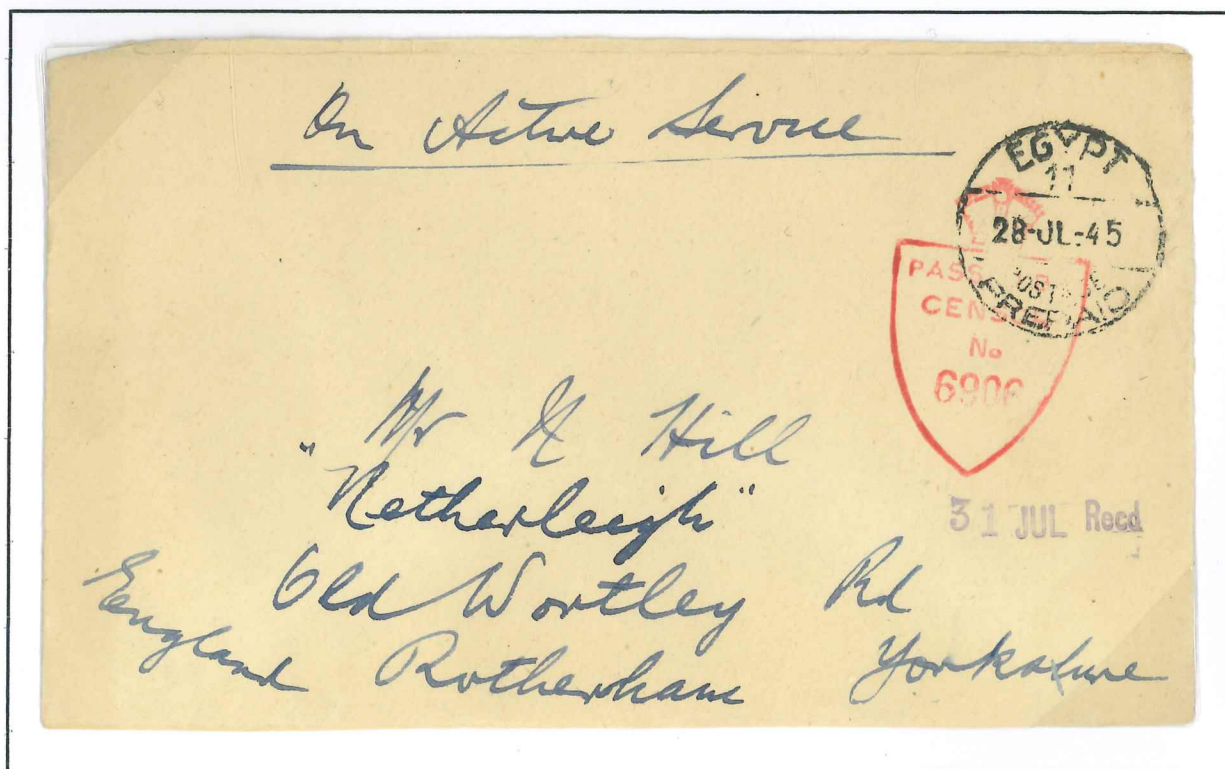 On Active Service
EGYPT
11
28-JUL-45
POSTAGE
PREPAID
PASSED
CENSOR
No
6906
Mr H Hill
"Netherleigh"
31 JUL Recd
Old Wortley Rd
England Rotherham Yorkshire